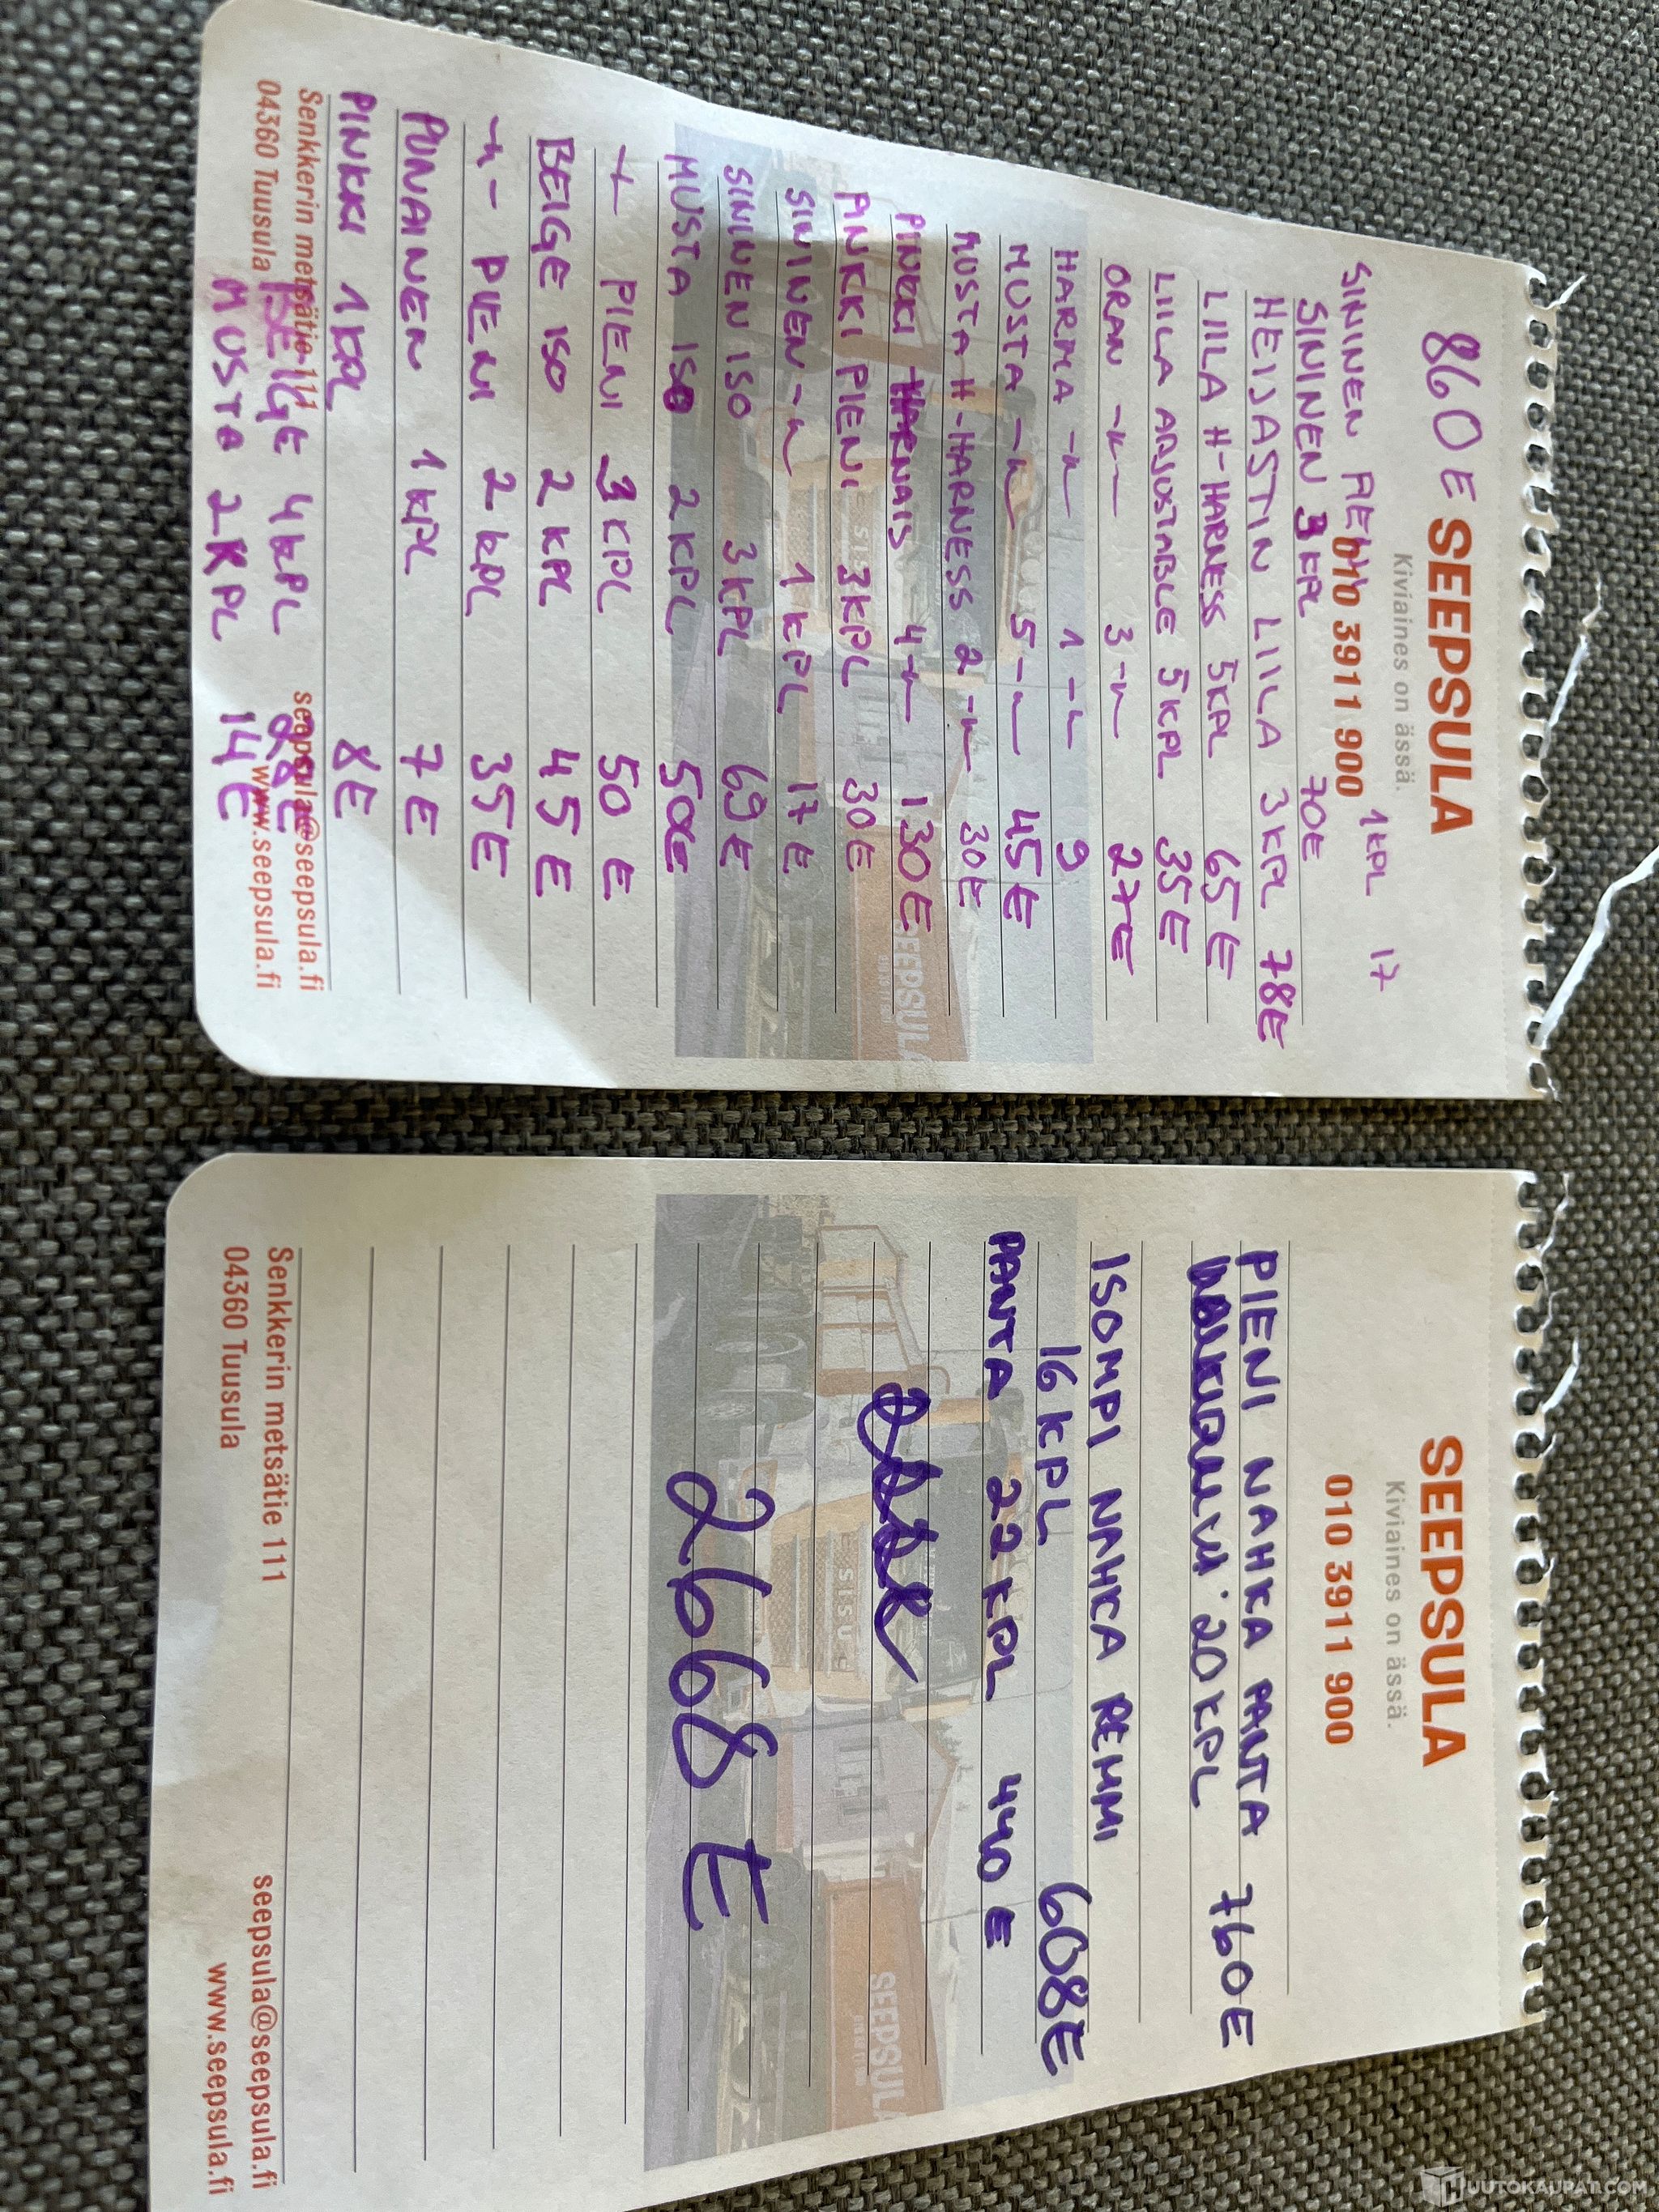 860E SEEPSULA
Kiviaines on ässä.
010 3911 900
SININEN REMMI 1KPL 17
SININEN 3KPL 70E
HEIJASTIN LIILA 3KPL 78E
LIILA H-HARNESS 5KPL 65E
LIILA ARJUSTABLE 5KPL 35E
ORAN -"- 3-"- 27E
HARMA -"- 1-"- 9
MUSTA -"- 5-"- 45E
MUSTA H-HARNESS 2-"- 30E
PINKKI HARNAIS 4-"- 130E
PINKKI PIENI 3KPL 30E
SININEN -"- 1KPL 17E
SININEN ISO 3KPL 69E
MUSTA ISO 2KPL 50E
-"- PIENI 3KPL 50E
BEIGE ISO 2KPL 45E
-"- PIENI 2KPL 35E
PUNAINEN 1KPL 7E
PINKKI 1KPL 8E
BEIGE 4KPL 28E
MUSTA 2KPL 14E
Senkkerin metsätie 111 seepsula@seepsula.fi
04360 Tuusula www.seepsula.fi
SISU
SEEPSULA
SEEPSULA
Kiviaines on ässä.
010 3911 900
PIENI NAHKA PANTA 760E
20KPL
ISOMPI NAHKA REMMI
16KPL 608E
PANTA 22KPL 440E
2668E
SISU
SEEPSULA
Senkkerin metsätie 111 seepsula@seepsula.fi
04360 Tuusula www.seepsula.fi
HUUTOKAUPAT.COM